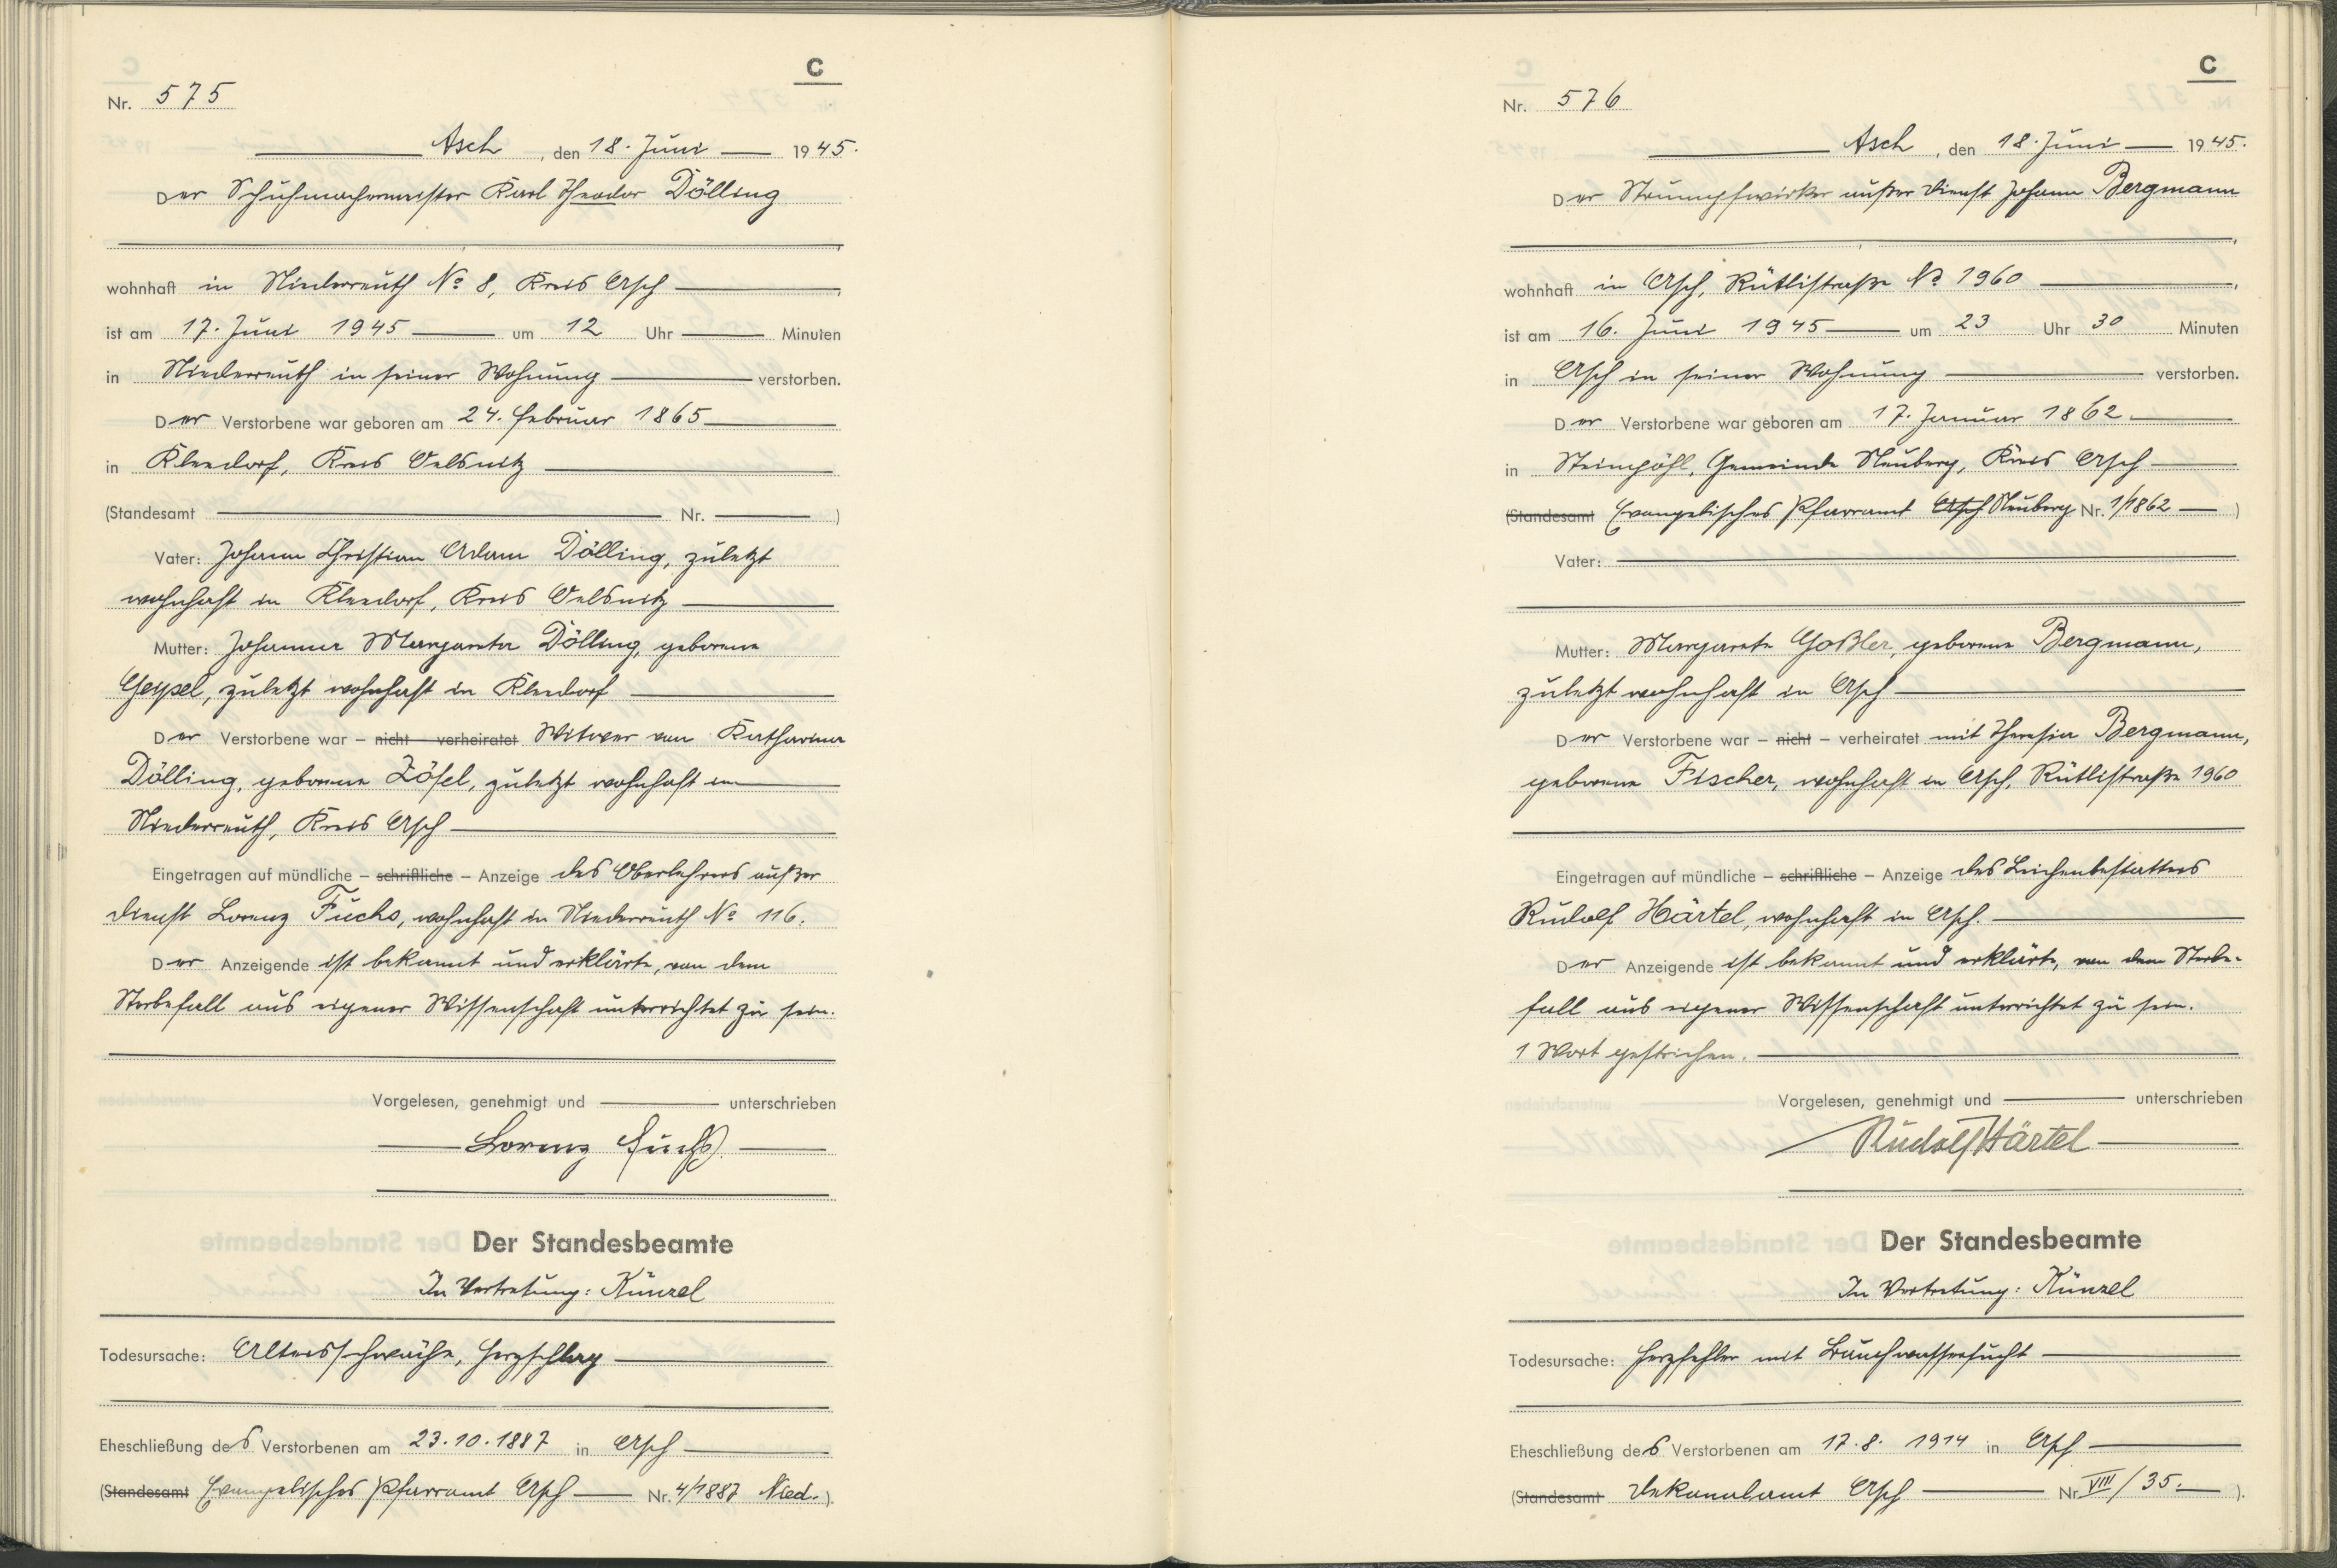 C
Nr. 575
Asch, den 18. Juni 1945.
Der Schuhmachermeister Karl Theodor Dölling
wohnhaft in Niederreuth No 8, Kreis Asch
ist am 17. Juni 1945 um 12 Uhr Minuten
in Niederreuth in seiner Wohnung verstorben.
Der Verstorbene war geboren am 24. Februar 1865
in Kleedorf, Kreis Oelsnitz
(Standesamt Nr. )
Vater: Johann Christian Adam Dölling, zuletzt
wohnhaft in Kleedorf, Kreis Oelsnitz
Mutter: Johanne Margareta Dölling, geborene
Geipel, zuletzt wohnhaft in Kleedorf
Der Verstorbene war – nicht – verheiratet Witwer von Katharina
Dölling, geborene Zösel, zuletzt wohnhaft in
Niederreuth, Kreis Asch
Eingetragen auf mündliche – schriftliche – Anzeige des Oberlehrers außer
Dienst Lorenz Fuchs, wohnhaft in Niederreuth No 116.
Der Anzeigende ist bekannt und erklärte, von dem
Sterbefall aus eigener Wissenschaft unterrichtet zu sein.
Vorgelesen, genehmigt und unterschrieben
Lorenz Fuchs
Der Standesbeamte
In Vertretung: Künzel
Todesursache: Altersschwäche, Herzschlag
Eheschließung des Verstorbenen am 23.10.1887 in Asch
(Standesamt Evangelisches Pfarramt Asch Nr. 4/1887 Nied.).
C
Nr. 576
Asch, den 18. Juni 1945.
Der Strumpfwirker außer Dienst Johann Bergmann
wohnhaft in Asch, Rütlistraße No 1960
ist am 16. Juni 1945 um 23 Uhr 30 Minuten
in Asch in seiner Wohnung verstorben.
Der Verstorbene war geboren am 17. Januar 1862
in Steinpöhl, Gemeinde Neuberg, Kreis Asch
(Standesamt Evangelisches Pfarramt Asch Neuberg Nr. 1/1862 )
Vater:
Mutter: Margarete Goßler, geborene Bergmann,
zuletzt wohnhaft in Asch
Der Verstorbene war – nicht – verheiratet mit Theresia Bergmann,
geborene Fischer, wohnhaft in Asch, Rütlistraße 1960
Eingetragen auf mündliche – schriftliche – Anzeige des Leichenbestatters
Rudolf Härtel, wohnhaft in Asch.
Der Anzeigende ist bekannt und erklärte, von dem Sterbe-
fall aus eigener Wissenschaft unterrichtet zu sein.
1 Wort gestrichen.
Vorgelesen, genehmigt und unterschrieben
Rudolf Härtel
Der Standesbeamte
In Vertretung: Künzel
Todesursache: Herzfehler mit Bauchwassersucht
Eheschließung des Verstorbenen am 17.8. 1914 in Asch
(Standesamt Dekanalamt Asch Nr. VIII/35. ).